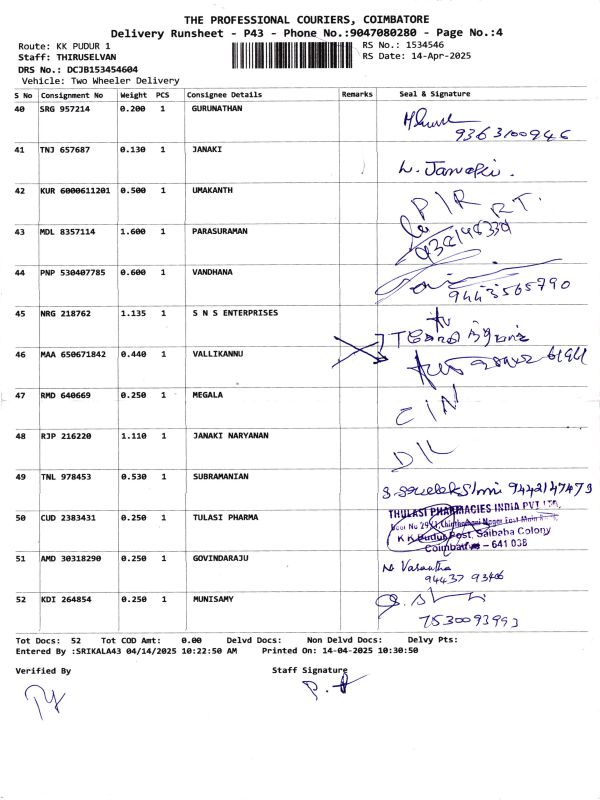 THE PROFESSIONAL COURIERS, COIMBATORE
Delivery Runsheet - P43 - Phone No.:9047080280 - Page No.:4
Route: KK PUDUR 1
RS No.: 1534546
Staff: THIRUSELVAN
RS Date: 14-Apr-2025
DRS No.: DCJB153454604
Vehicle: Two Wheeler Delivery
S No Consignment No Weight PCS Consignee Details Remarks Seal & Signature
40 SRG 957214 0.200 1 GURUNATHAN
9363100946
41 TNJ 657687 0.130 1 JANAKI
L. Janaki.
42 KUR 6000611201 0.500 1 UMAKANTH
P/R R T.
43 MDL 8357114 1.600 1 PARASURAMAN
44 PNP 530407785 0.600 1 VANDHANA
9443565790
45 NRG 218762 1.135 1 S N S ENTERPRISES
46 MAA 650671842 0.440 1 VALLIKANNU
47 RMD 640669 0.250 1 MEGALA
C/N
48 RJP 216220 1.110 1 JANAKI NARYANAN
D/L
49 TNL 978453 0.530 1 SUBRAMANIAN
9442147473
50 CUD 2383431 0.250 1 TULASI PHARMA
THULASI PHARMACIES INDIA PVT LTD,
K K Pudur Post, Saibaba Colony
Coimbatore - 641 038
51 AMD 30318290 0.250 1 GOVINDARAJU
Vasantha
52 KDI 264854 0.250 1 MUNISAMY
7530093993
Tot Docs: 52 Tot COD Amt: 0.00 Delvd Docs: Non Delvd Docs: Delvy Pts:
Entered By :SRIKALA43 04/14/2025 10:22:50 AM Printed On: 14-04-2025 10:30:50
Verified By Staff Signature